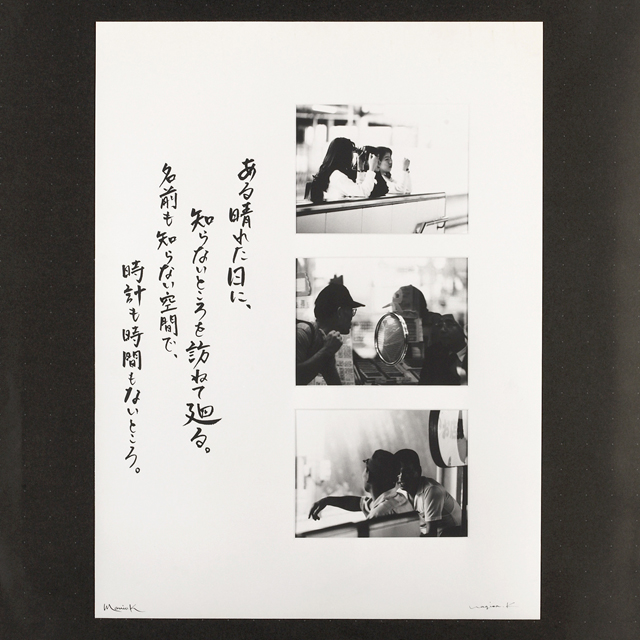 ある晴れた日に、
知らないところを訪ねて廻る。
名前も知らない空間で、
時計も時間もないところ。